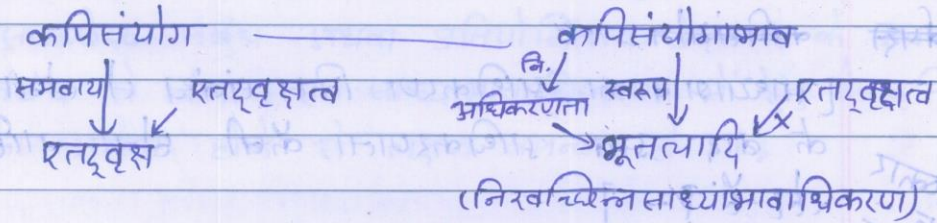 कपिसंयोग ——— कपिसंयोगाभाव
समवाय एतद्वृक्षत्व नि. स्वरूप एतद्वृक्षत्व
अधिकरणता
एतद्वृक्ष भूतत्वादि
(निरवच्छिन्न साध्याभावाधिकरण)